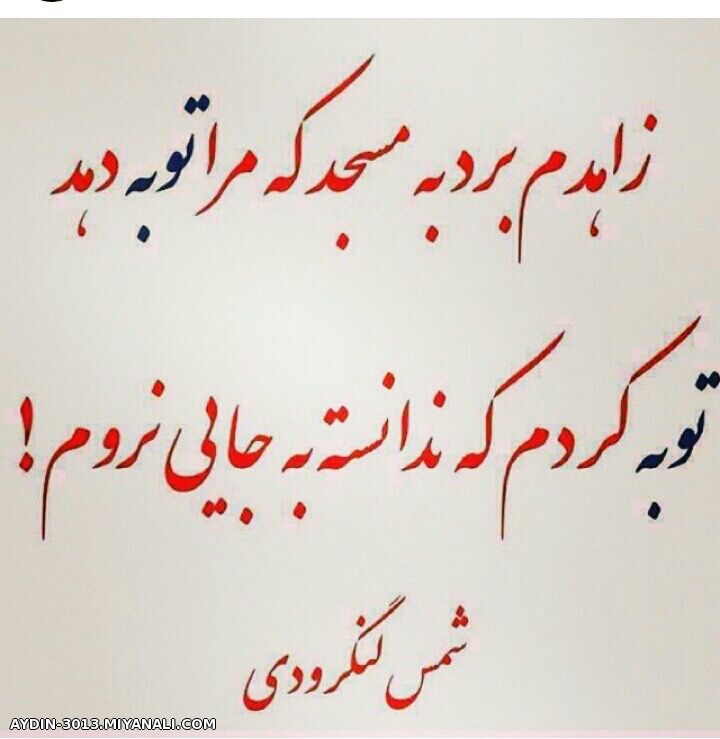 زاهدم برد به مسجد که مرا توبه دهد
توبه کردم که ندانسته به جایی نروم !
شمس لنگرودی
AYDIN-3013.MIYANALI.COM